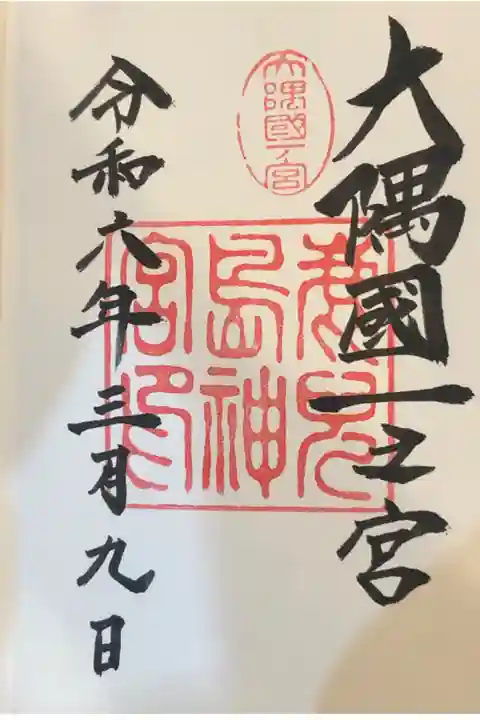 大隅國一之宮
大隅國一宮
鹿兒島神宮印
令和六年三月九日